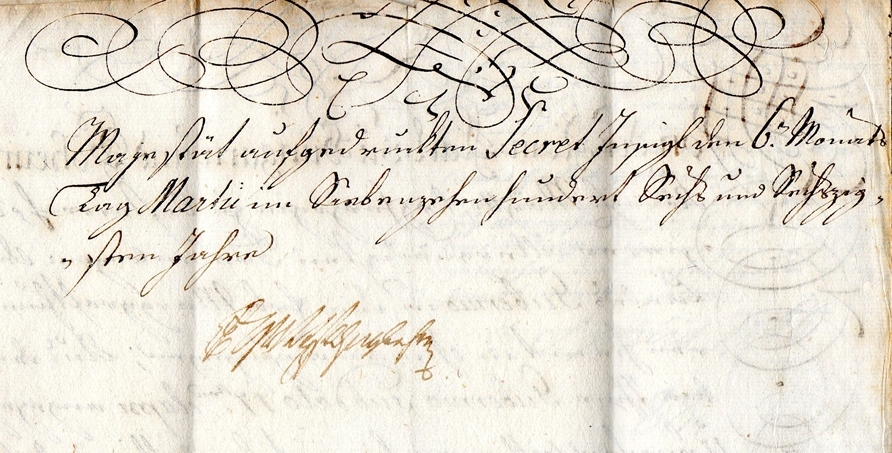 Magestät aufgedruckten Secret Insigl den 6ᵗᵉⁿ Monats
Tag Martii im Siebenzehenhundert Sechs und Sechszig-
-sten Jahre